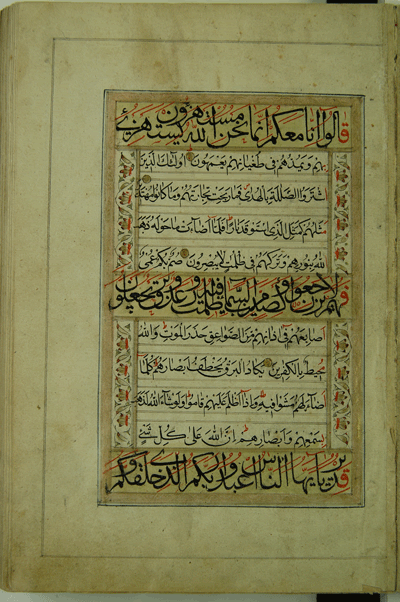 قالوا انا معكم انما نحن مستهزؤن الله يستهزئ
بهم ويمدهم في طغيانهم يعمهون اولئك الذين
اشتروا الضللة بالهدى فما ربحت تجارتهم وما كانوا مهتدين
مثلهم كمثل الذي استوقد نارا فلما اضاءت ما حوله ذهب
الله بنورهم وتركهم في ظلمت لا يبصرون صم بكم عمي
فهم لا يرجعون او كصيب من السماء فيه ظلمت ورعد وبرق يجعلون
اصابعهم في اذانهم من الصواعق حذر الموت والله
محيط بالكفرين يكاد البرق يخطف ابصارهم كلما
اضاء لهم مشوا فيه واذا اظلم عليهم قاموا ولو شاء الله لذهب
بسمعهم وابصارهم ان الله على كل شئ
قدير يايها الناس اعبدوا ربكم الذي خلقكم و